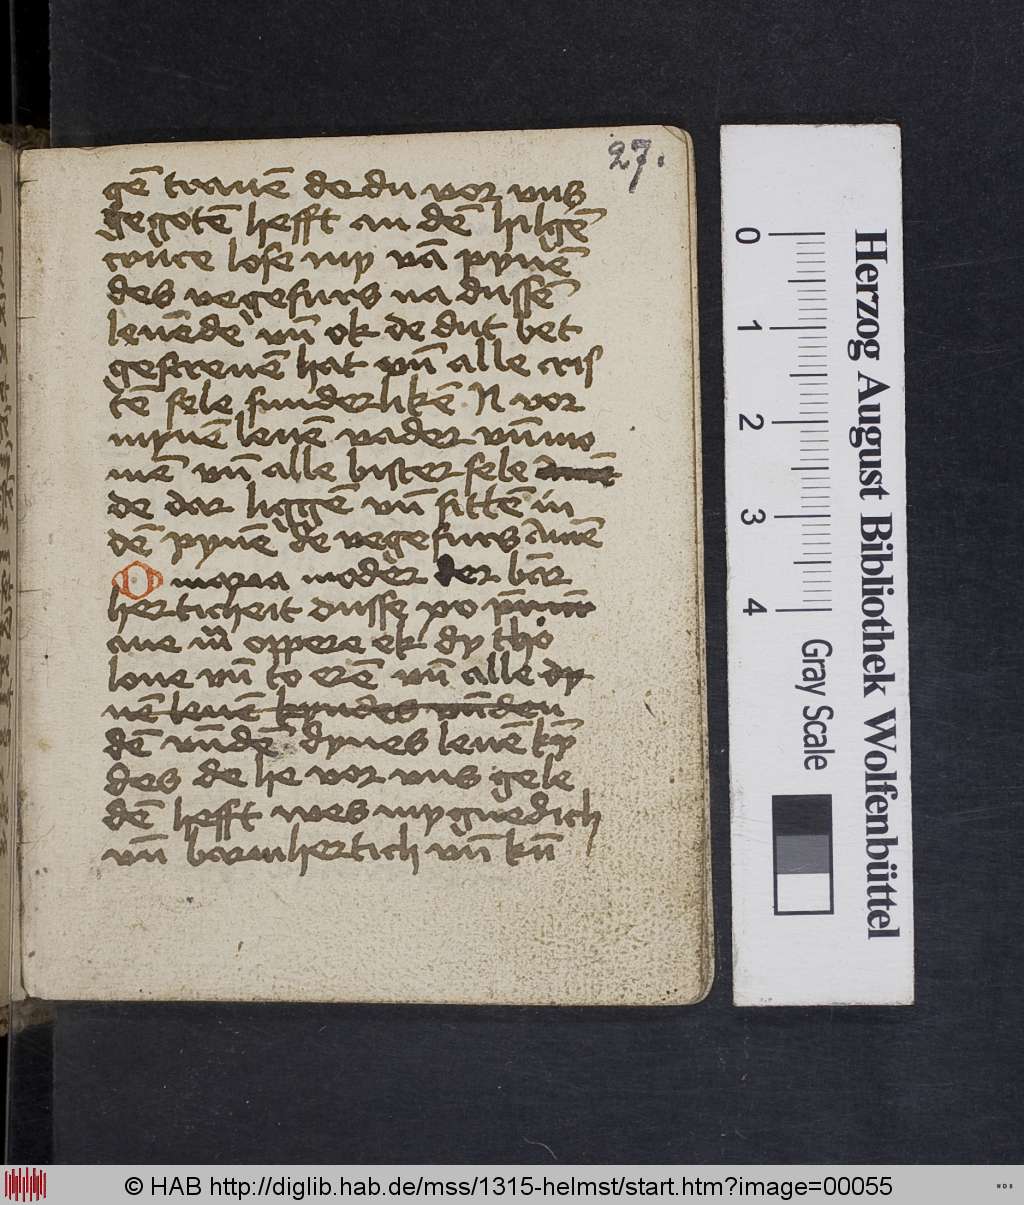 27.
gē tranē de du vor vns
gegotē hefft an dē hilgē
cruce lose my vā pynē
des vegefurs na dussē
leuēde vn̄ ok de dut bet
gescreuē hat vn̄ alle cris
tē sele sunderlikē N vor
mynē leuē vader vn̄ mo
mē vn̄ alle bister sele
de dar liggē vn̄ sittē in
dē pynē de vegefurs Amē
O maria moder der bar
herticheit dusse
aue oppere ek dy tho
loue vn̄ to erē vn̄ alle dy
nē leuē kyndes vn̄ den
dē vn̄dē dynes leuē kȳ
des de he vor vns gele
dē hefft wes my gnedich
vn̄ barmhertich vn̄ kn̄
Herzog August Bibliothek Wolfenbüttel
0 1 2 3 4 Gray Scale
© HAB http://diglib.hab.de/mss/1315-helmst/start.htm?image=00055